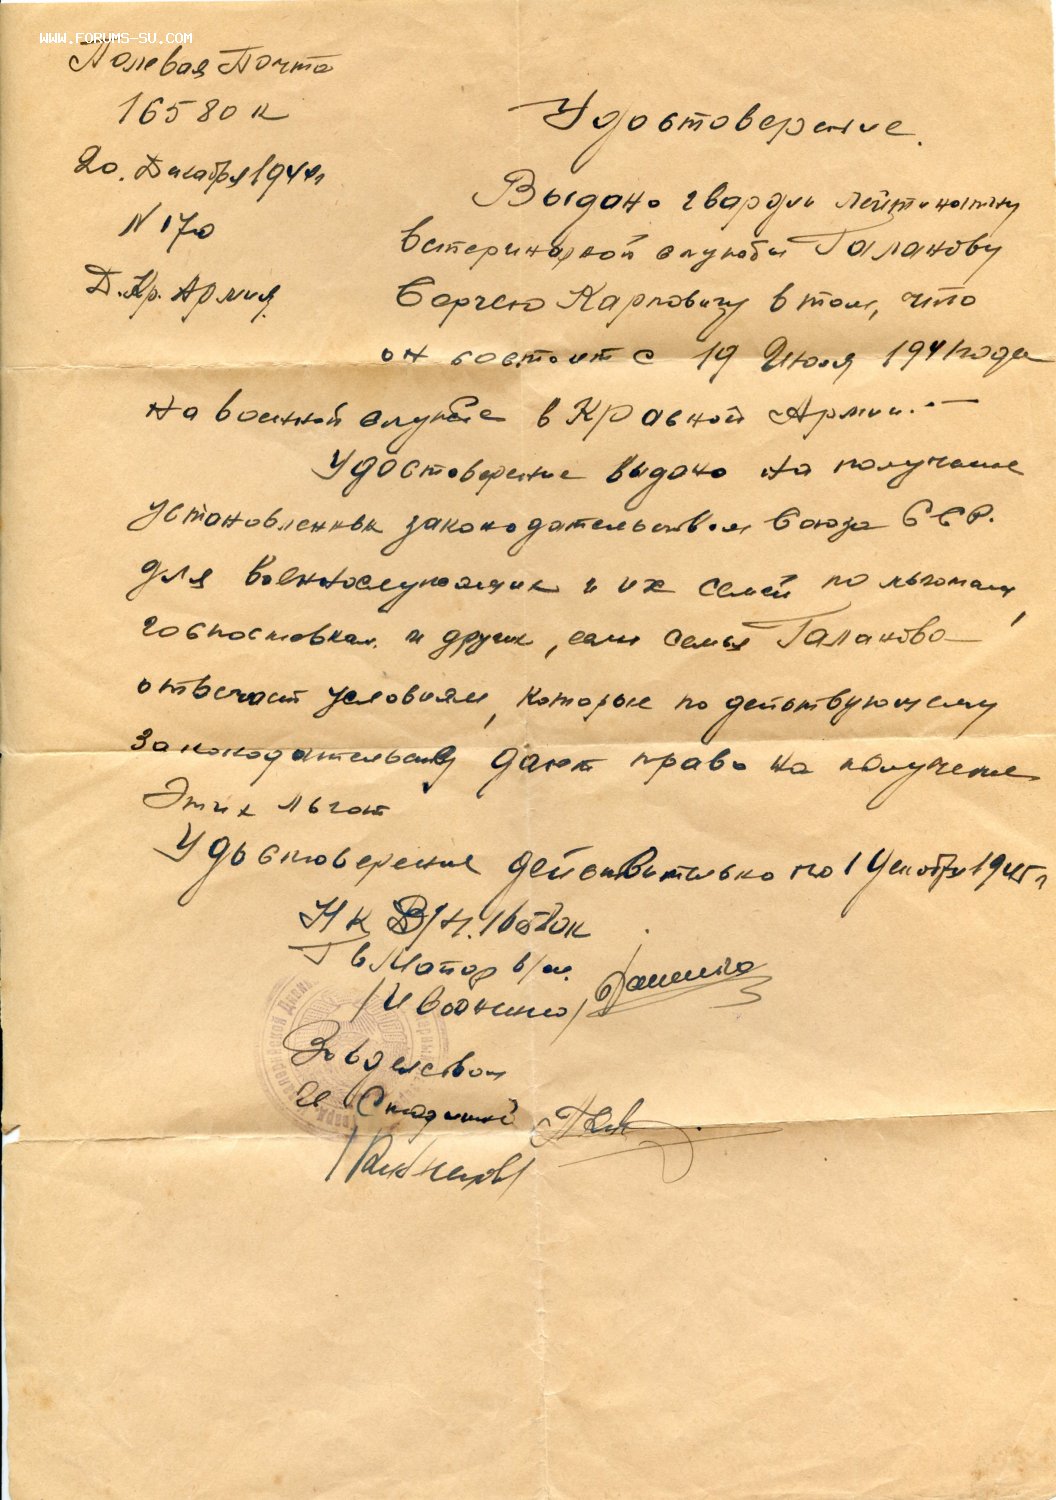 www.forums-su.com
Полевая Почта
16580 к
20. Декабря 1944 г
N 170
Д. Кр. Армия
Удостоверение.
Выдано гвардии лейтинанту
ветеринарной службы Галанову
Сергею Карповичу в том, что
он состоит с 19 Июля 1941 года
на военной службе в Красной Армии. —
Удостоверение выдано на получение
установленных законодательством Союза ССР.
для военнослужащих и их семей по льготам,
госпоставкам и других, если семья Галанова
отвечает условиям, которые по действующему
законодательству дают право на получение
Этих льгот
Удостоверение действительно по 1 декабря 1945 г
к В/ч. 16580к
Гв Майор в/с.
Зав делством